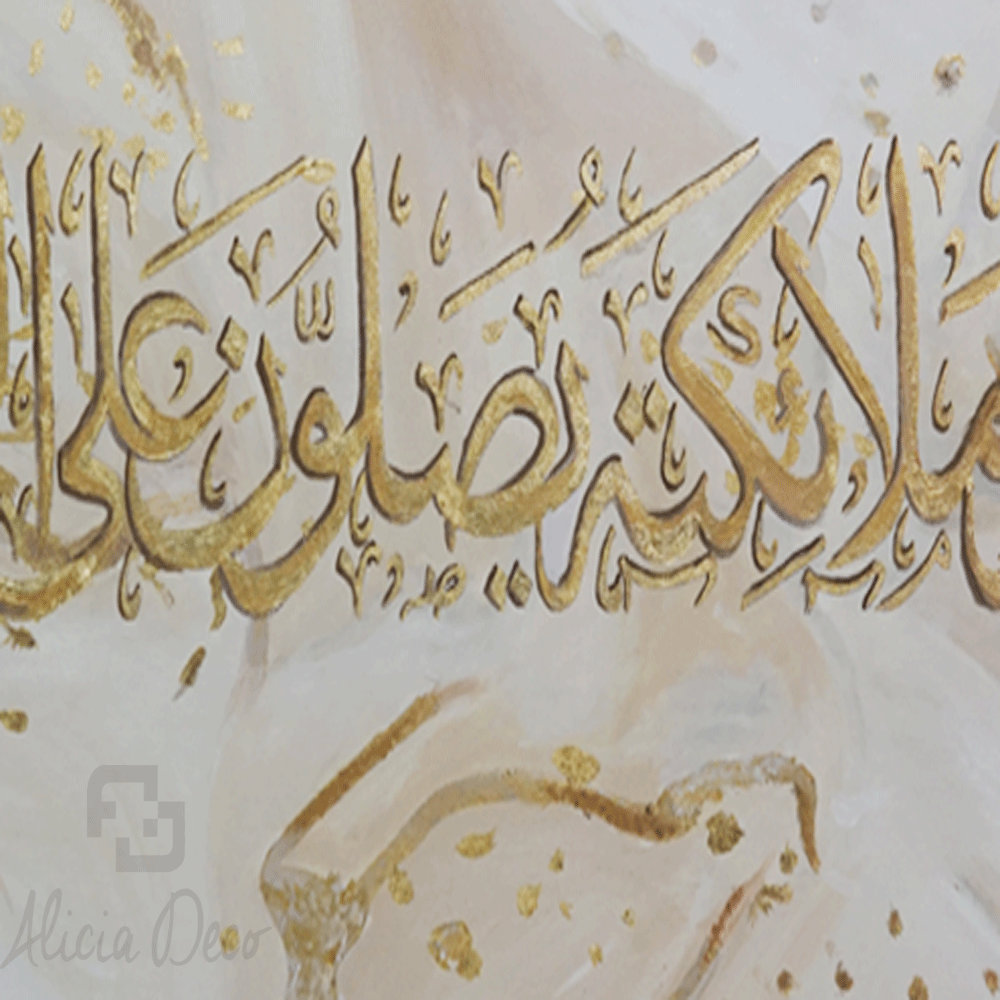 مَلَائِكَتَهُ يُصَلُّونَ عَلَى
Alicia Deco